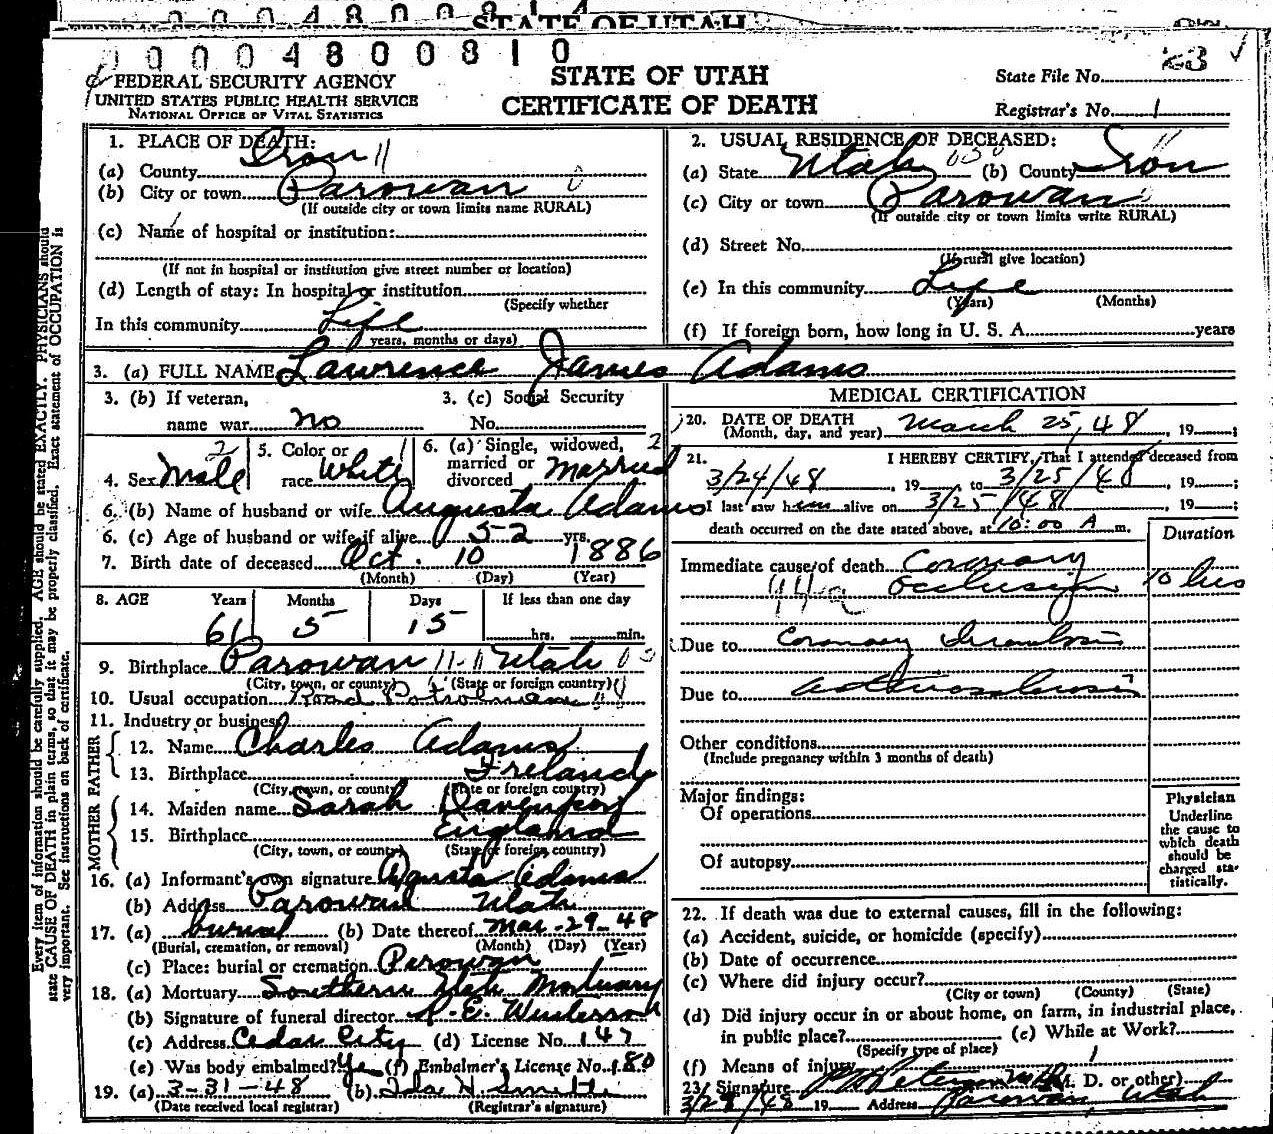 STATE OF UTAH
10004800810
23
FEDERAL SECURITY AGENCY
UNITED STATES PUBLIC HEALTH SERVICE
NATIONAL OFFICE OF VITAL STATISTICS
STATE OF UTAH
CERTIFICATE OF DEATH
State File No.
Registrar's No. 1
1. PLACE OF DEATH:
(a) County Iron 11
(b) City or town Parowan 0
(If outside city or town limits name RURAL)
(c) Name of hospital or institution:
(If not in hospital or institution give street number or location)
(d) Length of stay: In hospital or institution
(Specify whether
In this community Life
years, months or days)
2. USUAL RESIDENCE OF DECEASED:
(a) State Utah (b) County Iron 11
(c) City or town Parowan
(If outside city or town limits write RURAL)
(d) Street No.
(If rural give location)
(e) In this community Life
(Years) (Months)
(f) If foreign born, how long in U. S. A. years
3. (a) FULL NAME Lawrence James Adams
3. (b) If veteran,
name war no
3. (c) Social Security
No.
4. Sex Male 2
5. Color or
race White 1
6. (a) Single, widowed,
married or
divorced Married 2
6. (b) Name of husband or wife Augusta Adams
6. (c) Age of husband or wife if alive 52 yrs.
7. Birth date of deceased Oct. 10 1886
(Month) (Day) (Year)
8. AGE Years Months Days If less than one day
61 5 15 hrs. min.
9. Birthplace Parowan 11-11 Utah
(City, town, or county) (State or foreign country)
10. Usual occupation Road Patrolman
11. Industry or business
FATHER
12. Name Charles Adams
13. Birthplace Ireland
(City, town, or county) (State or foreign country)
MOTHER
14. Maiden name Sarah Davenport
15. Birthplace England
(City, town, or county) (State or foreign country)
16. (a) Informant's own signature Agusta Adams
(b) Address Parowan Utah
17. (a) burial (b) Date thereof Mar-29-48
(Burial, cremation, or removal) (Month) (Day) (Year)
(c) Place: burial or cremation Parowan
18. (a) Mortuary Southern Utah Mortuary
(b) Signature of funeral director
(c) Address Cedar City (d) License No. 147
(e) Was body embalmed? Yes (f) Embalmer's License No. 180
19. (a) 3-31-48 (b) Ida H. Smith
(Date received local registrar) (Registrar's signature)
MEDICAL CERTIFICATION
20. DATE OF DEATH
(Month, day, and year) March 25, 48, 19 ;
21. I HEREBY CERTIFY, That I attended deceased from
3/24/48, 19 , to 3/25/48, 19 ;
I last saw him alive on 3/25/48, 19 ;
death occurred on the date stated above, at 10:00 A m.
Duration
Immediate cause of death Coronary
94a occlusion 10 hrs
Due to Coronary thrombosis
Due to arteriosclerosis
Other conditions
(Include pregnancy within 3 months of death)
Major findings:
Of operations
Of autopsy
Physician
Underline
the cause to
which death
should be
charged sta-
tistically.
22. If death was due to external causes, fill in the following:
(a) Accident, suicide, or homicide (specify)
(b) Date of occurrence
(c) Where did injury occur?
(City or town) (County) (State)
(d) Did injury occur in or about home, on farm, in industrial place,
in public place? (e) While at Work?
(Specify type of place)
(f) Means of injury
23. Signature (M. D. or other)
3/29/48 19 Address Parowan, Utah
Every item of information should be carefully supplied. AGE should be stated EXACTLY. PHYSICIANS should
state CAUSE OF DEATH in plain terms, so that it may be properly classified. Exact statement of OCCUPATION is
very important. See instructions on back of certificate.